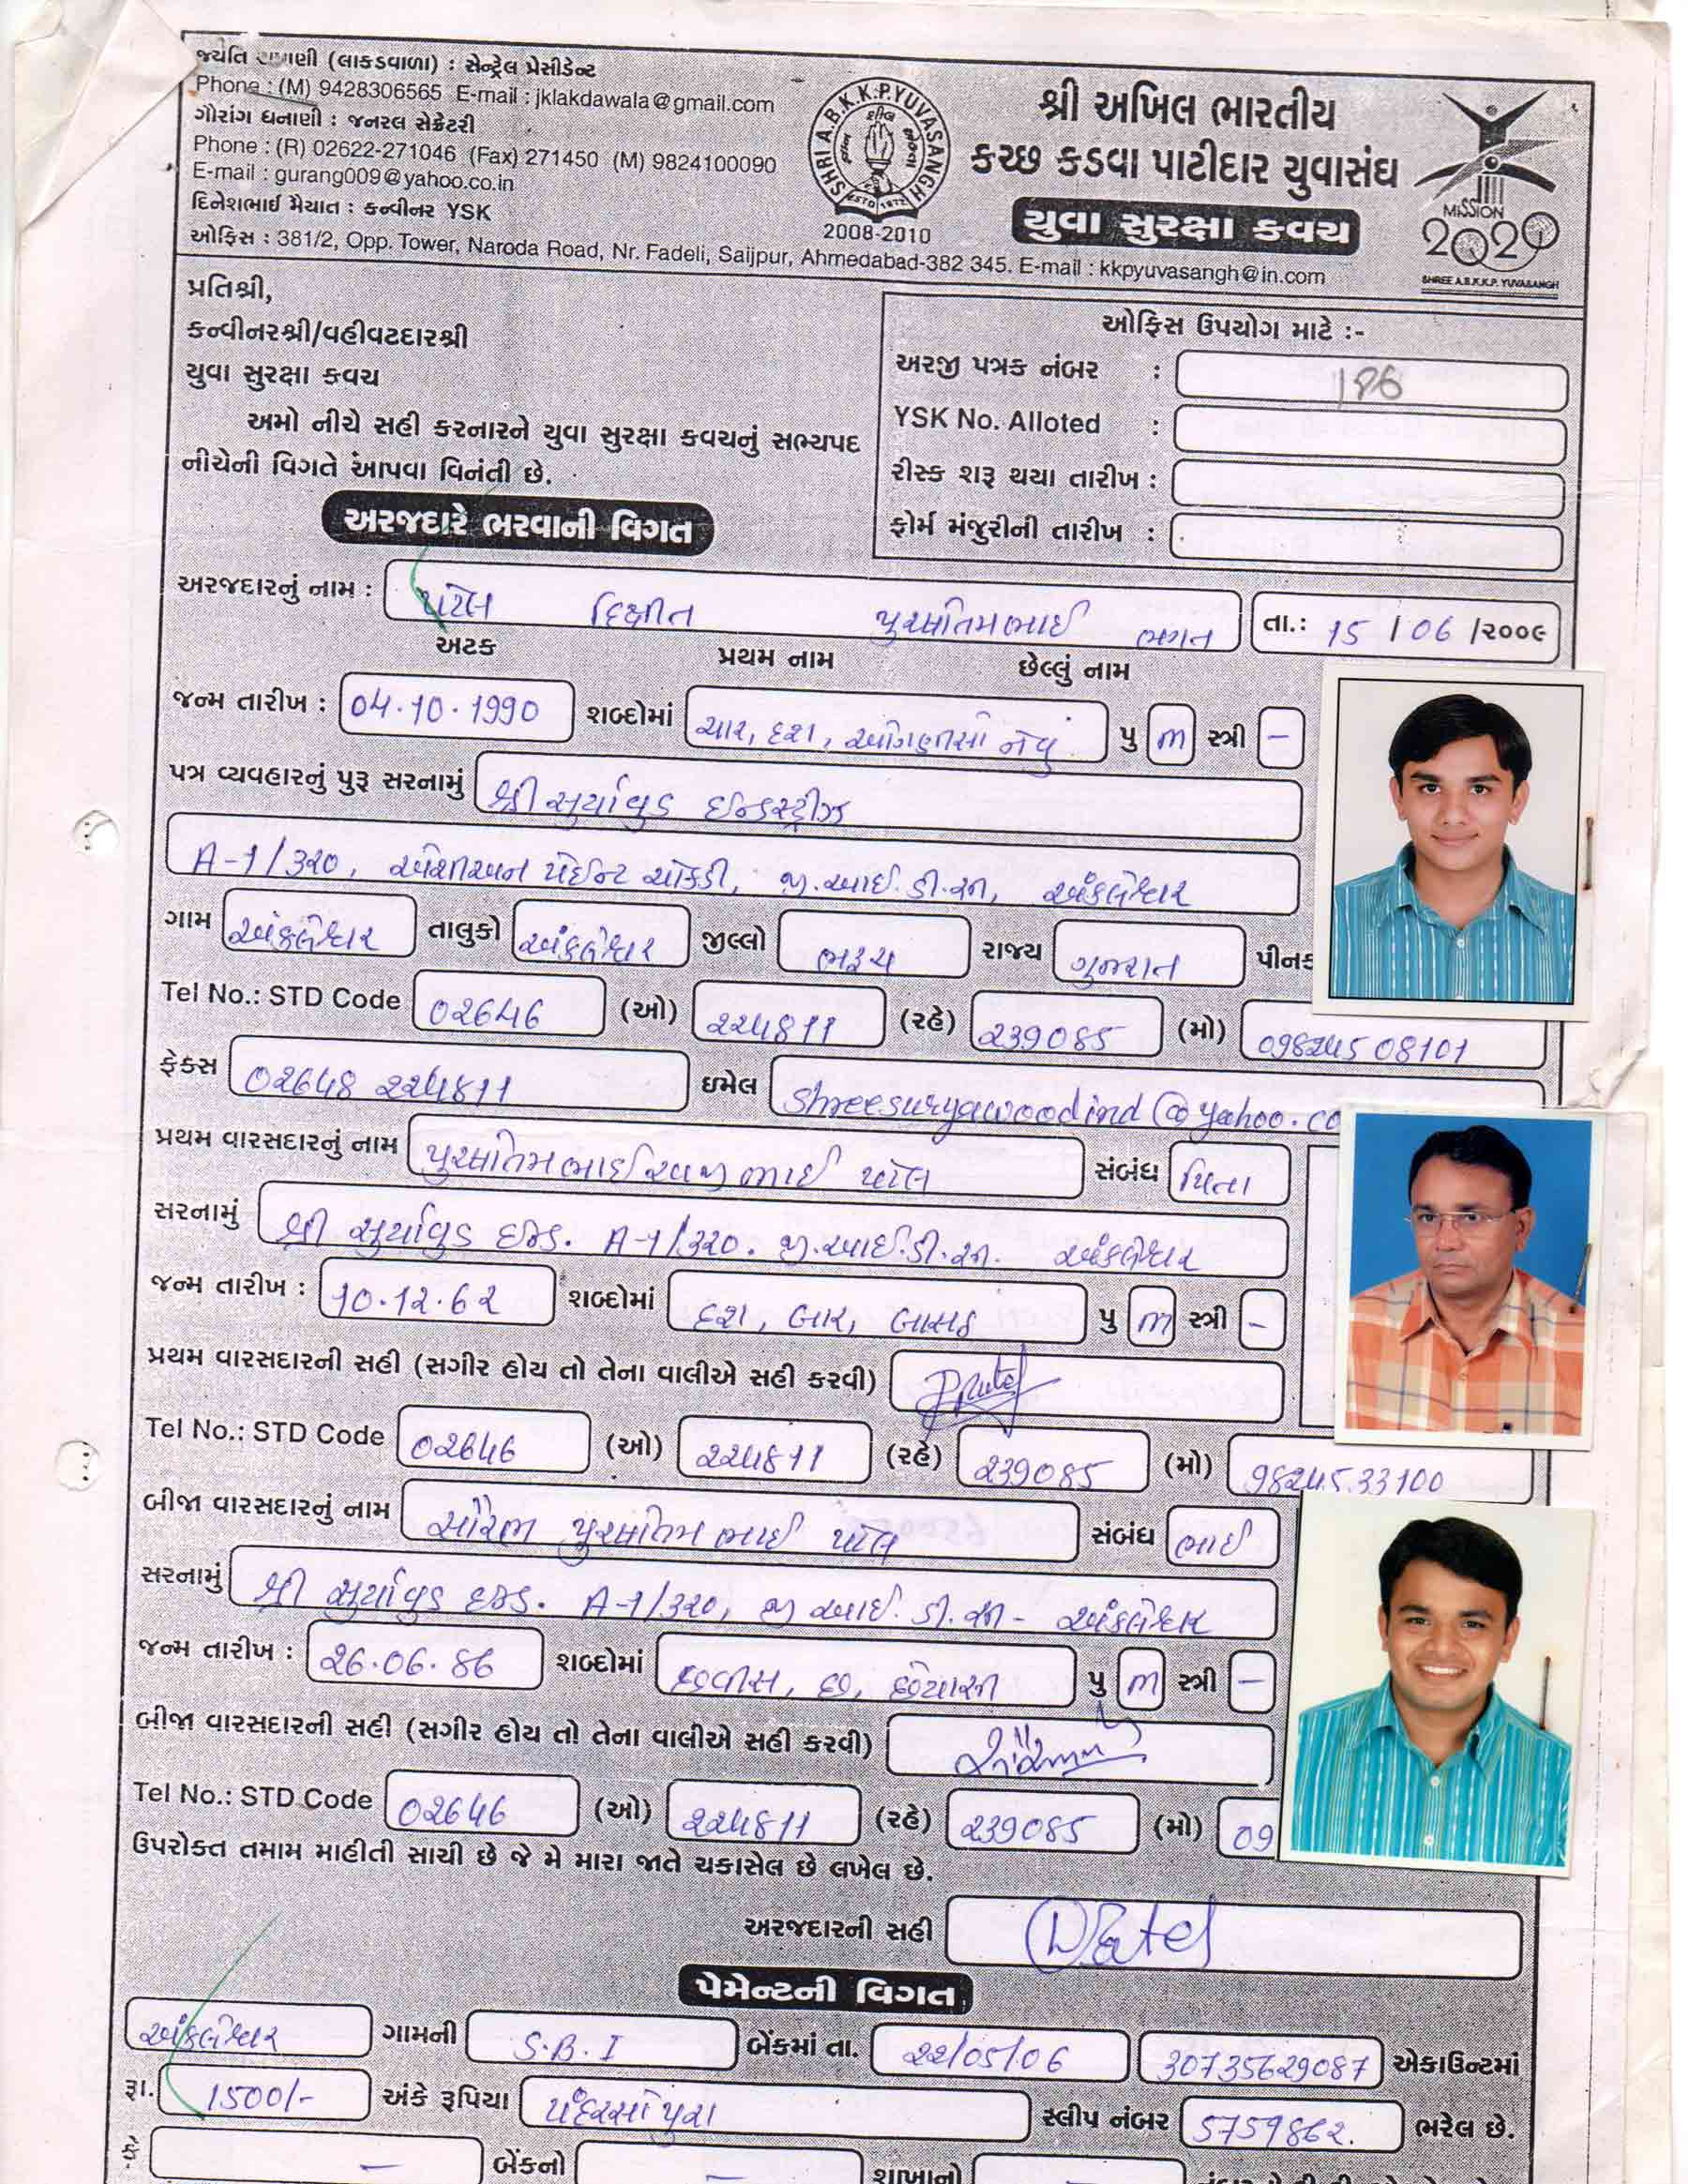 જ્યંતિ રામાણી (લાકડવાળા) : સેન્ટ્રેલ પ્રેસીડેન્ટ
Phone : (M) 9428306565 E-mail : jklakdawala@gmail.com
ગૌરાંગ ધનાણી : જનરલ સેક્રેટરી
Phone : (R) 02622-271046 (Fax) 271450 (M) 9824100090
E-mail : gurang009@yahoo.co.in
દિનેશભાઈ મૈયાત : કન્વીનર YSK
ઓફિસ : 381/2, Opp. Tower, Naroda Road, Nr. Fadeli, Saijpur, Ahmedabad-382 345. E-mail : kkpyuvasangh@in.com
SHRI A.B.K.K.P. YUVASANGH
ESTD 1972
2008-2010
શ્રી અખિલ ભારતીય
કચ્છ કડવા પાટીદાર યુવાસંઘ
યુવા સુરક્ષા કવચ
MISSION
2020
SHREE A.B.K.K.P. YUVASANGH
પ્રતિશ્રી,
કન્વીનરશ્રી/વહીવટદારશ્રી
યુવા સુરક્ષા કવચ
અમો નીચે સહી કરનારને યુવા સુરક્ષા કવચનું સભ્યપદ
નીચેની વિગતે આપવા વિનંતી છે.
ઓફિસ ઉપયોગ માટે :-
અરજી પત્રક નંબર : 186
YSK No. Alloted :
રીસ્ક શરૂ થયા તારીખ :
ફોર્મ મંજુરીની તારીખ :
અરજદારે ભરવાની વિગત
અરજદારનું નામ : પટેલ દિક્ષીત પુરષોતમભાઈ ભગત તા.: 15 / 06 /૨૦૦૯
અટક પ્રથમ નામ છેલ્લું નામ
જન્મ તારીખ : 04.10.1990 શબ્દોમાં ચાર, દશ, ઓગણીસો નેવું પુ m સ્ત્રી -
પત્ર વ્યવહારનું પુરૂ સરનામું શ્રી સુર્યાવુડ ઈન્ડસ્ટ્રીઝ
A-1/320, એશીઅન પેઈન્ટ ચોકડી, જી.આઈ.ડી.સી, અંકલેશ્વર
ગામ અંકલેશ્વર તાલુકો અંકલેશ્વર જીલ્લો ભરૂચ રાજ્ય ગુજરાત પીનક
Tel No.: STD Code 02646 (ઓ) 224811 (રહે) 239085 (મો) 09824508101
ફેક્સ 02648 224811 ઇમેલ shreesuryawoodind@yahoo.co
પ્રથમ વારસદારનું નામ પુરષોતમભાઈ રવજીભાઈ પટેલ સંબંધ પિતા
સરનામું શ્રી સુર્યાવુડ ઈન્ડ. A-1/320. જી.આઈ.ડી.સી. અંકલેશ્વર
જન્મ તારીખ : 10.12.62 શબ્દોમાં દશ, બાર, બાસઠ પુ m સ્ત્રી -
પ્રથમ વારસદારની સહી (સગીર હોય તો તેના વાલીએ સહી કરવી) PPatel
Tel No.: STD Code 02646 (ઓ) 224811 (રહે) 239085 (મો) 9824533100
બીજા વારસદારનું નામ સૌરભ પુરષોતમભાઈ પટેલ સંબંધ ભાઈ
સરનામું શ્રી સુર્યાવુડ ઈન્ડ. A-1/320, જી આઈ. ડી. સી - અંકલેશ્વર
જન્મ તારીખ : 26.06.86 શબ્દોમાં છવ્વીસ, છ, છયાસી પુ m સ્ત્રી -
બીજા વારસદારની સહી (સગીર હોય તો તેના વાલીએ સહી કરવી)
Tel No.: STD Code 02646 (ઓ) 224811 (રહે) 239085 (મો) 09
ઉપરોક્ત તમામ માહીતી સાચી છે જે મે મારા જાતે ચકાસેલ છે લખેલ છે.
અરજદારની સહી DPatel
પેમેન્ટની વિગત
અંકલેશ્વર ગામની S.B.I બેંકમાં તા. 22/05/06 30735629087 એકાઉન્ટમાં
રૂા. 1500/- અંકે રૂપિયા પંદરસો પુરા સ્લીપ નંબર 5759862. ભરેલ છે.
બેંકનો શાખાનો